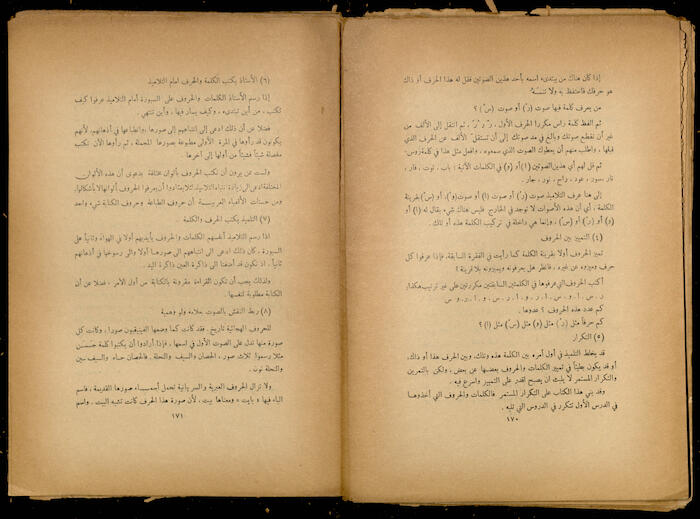 إذا كان هناك من يبتدىء اسمه بأحد هذين الصوتين فقل له هذا الحرف أو ذاك
هو حرفك فاحتفظ به ولا تنسه
من يعرف كلمة فيها صوت (رْ) أو صوت (سْ) ؟
ثم الفظ كلمة راس مكررا الحرف الأول ، رْ، رْ، رْ ، ثم انتقل إلى الألف من
غير أن تقطع صوتك وبالغ في مد صوتك إلى أن تستقل الألف عن الحرف الذي
قبلها ، واطلب منهم أن يعطوك الصوت الذي سمعوه . وافعل مثل هذا في كلمة روس.
ثم قل لهم أي هذين الصوتين (ا) أو (و) في الكلمات الآتية : باب ، توت ، فار ،
نار سور ، عود ، راح ، نور ، جار .
إلى هنا عرف التلاميذ صوت (رْ) أو صوت (ا) أو صوت (و)، أو (سْ) بقرينة
الكلمة ، أي أن هذه الأصوات لا توجد في الخارج فليس هناك شيء يقال له (ا) أو
(و) أو (رْ) أو (سْ) ، وإنما هي داخلة في تركيب الكلمة هذه أو تلك .
(٤) التمييز بين الحروف
تميز الحروف أولا بقرينة الكلمة كما رأيت في الفقرة السابقة. فإذا عرفوا كل
حرف وميزوه عن غيره ، فانظر هل يعرفونه ويميزونه بلا قرينة ؟
أكتب الحروف التي عرفوها في الكلمتين السابقتين مكررتين على غير ترتيب هكذا:
ر . س . ا . و . س . ا . ر . ر . و . ا . ر . س . و . ا . ر . و . س
كم عدد هذه الحروف ؟ عدوها .
كم حرفا مثل (رْ) مثل (و) مثل (سْ) مثل (ا) ؟
(٥) التكرار
قد يخلط التلميذ في أول أمره بين الكلمة هذه وتلك، وبين الحرف هذا أو ذاك،
أو قد يكون بطيئاً في تمييز الكلمات والحروف بعضها عن بعض ، ولكن بالتمرين
والتكرار المستمر لا يلبث أن يصبح أقدر على التمييز وأسرع فيه .
وقد بني هذا الكتاب على التكرار المستمر فالكلمات والحروف التي أخذوها
في الدرس الأول تتكرر في الدروس التي تليه .
١٧٠
(٦) الأستاذ يكتب الكلمة والحرف امام التلاميذ
إذا رسم الأستاذ الكلمات والحروف على السبورة أمام التلاميذ عرفوا كيف
تكتب ، من أين تبتدىء ، وكيف يسار فيها ، وأين تنتهي .
فضلا عن أن ذلك ادعى إلى انتباههم إلى صورها وانطباعها في أذهانهم، لأنهم
يكونون قد رأوها في المرة الأولى مطبوعة بصورها المجملة ، ثم رأوها الآن تكتب
مفصلة شيئاً فشيئاً من أولها إلى آخرها .
ولست من يرون أن تكتب الحروف بألوان مختلفة بدعوى أن هذه الألوان
المختلفة ادعى إلى زيادة انتباه التلاميذ لئلا يعتادوا أن يعرفوا الحروف بألوانها لا بأشكالها.
ومن حسنات الألفباء العربية أن حروف الطباعة وحروف الكتابة شيء واحد
(٧) التلميذ يكتب الحرف والكلمة .
اذا رسم التلاميذ أنفسهم الكلمات والحروف بأيديهم أولا في الهواء وثانياً على
السبورة ، كان ذلك ادعى الى انتباههم الى صورها أولا والى رسوخها في أذهانهم
ثانياً ، اذ نكون قد أضفنا الى ذاكرة العين ذاكرة اليد .
ولذلك يجب أن تكون القراءة مقرونة بالكتابة من أول الامر ، فضلا عن أن
الكتابة مطلوبة لنفسها .
(٨) ربط النقش بالصوت علامة ولو وهمية
للحروف الهجائية تاريخ . فقد كانت كما وضعها الفينيقيون صورا ، وكانت كل
صورة منها تدل على الصوت الأول في اسمها ، فإذا أرادوا أن يكتبوا كلمة حسن
مثلا رسموا ثلاث صور ، الحصان والسيف والنحلة . فالحصان حاء والسيف سين
والنحلة نون .
ولا تزال الحروف العبرية والسريانية تحمل أسماء صورها القديمة ، فاسم
الباء فيها « بايت » ومعناها بيت ، لأن صورة هذا الحرف كانت تشبه البيت . واسم
١٧١